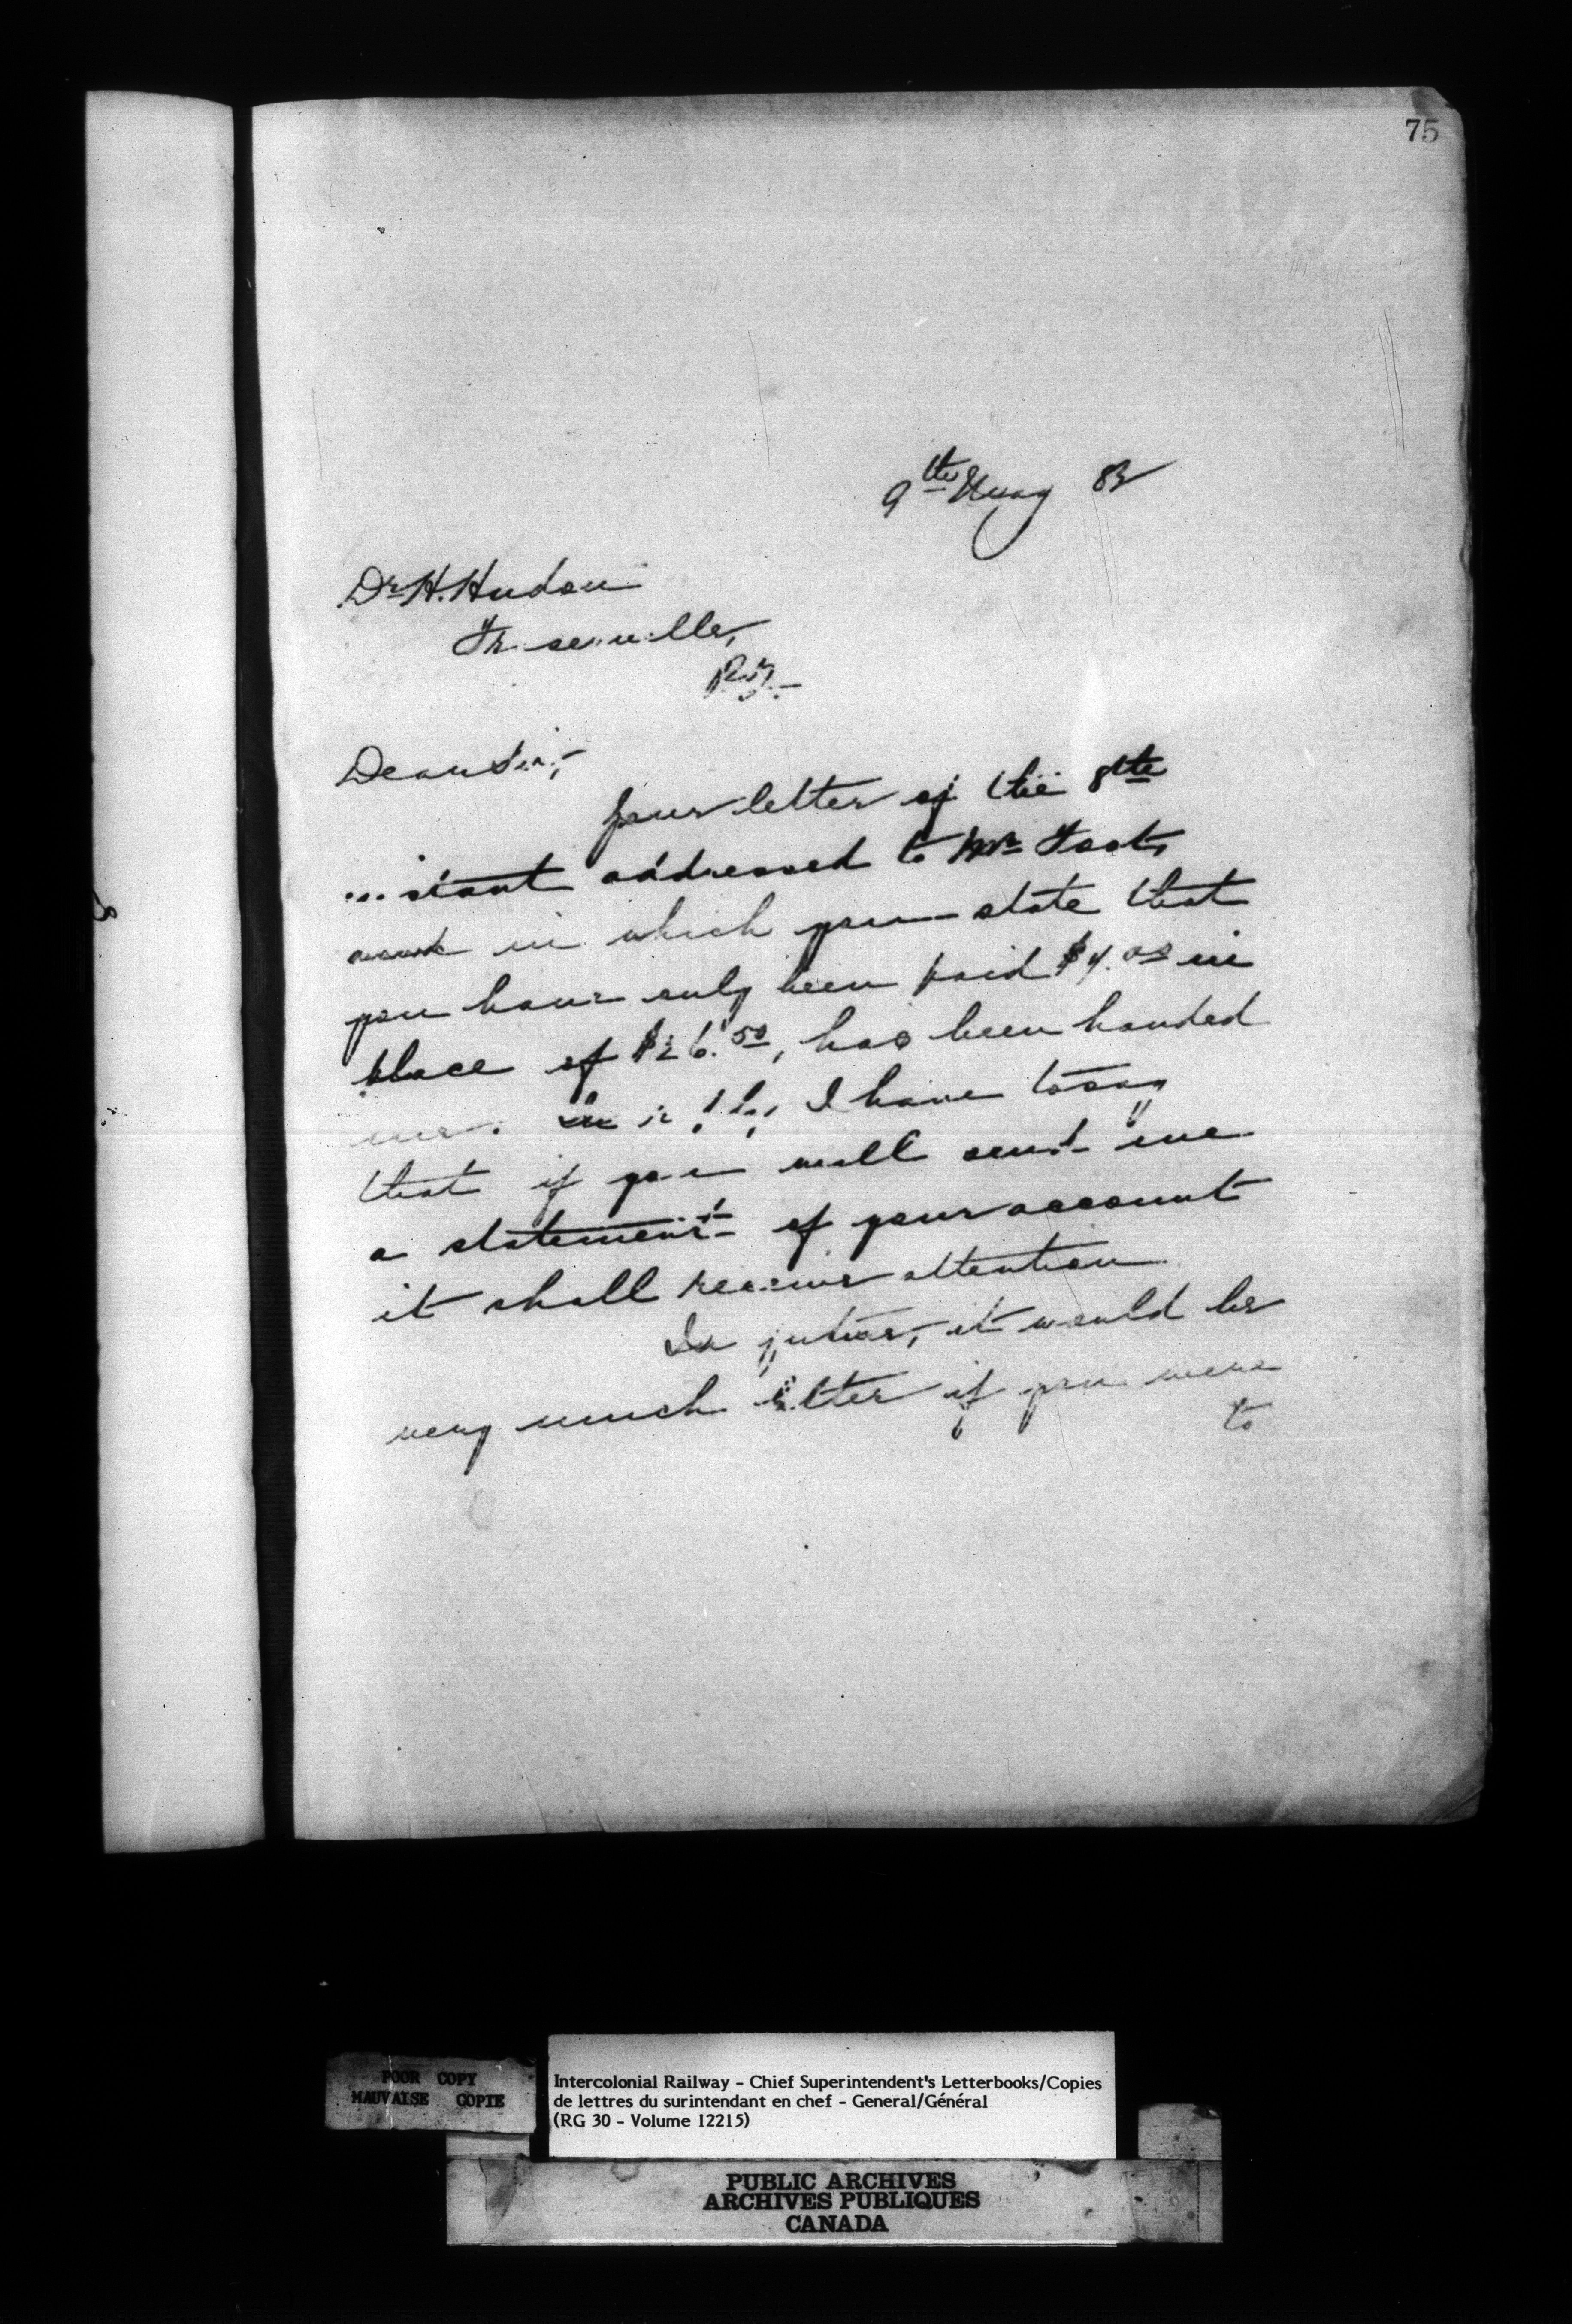 75
9th May 83
Dr H. Hudon
P.Q.
Dear Sir,
Your letter of the 8th
instant addressed to Mr
in which you state that
you have only been paid $4.00 in
place of $26.50, has been handed
me. I have to say
that if you will send me
a statement of your account
it shall receive attention
In future, it would be
very much better if you were
to
POOR COPY
MAUVAISE COPIE
Intercolonial Railway - Chief Superintendent's Letterbooks/Copies
de lettres du surintendant en chef - General/Général
(RG 30 - Volume 12215)
PUBLIC ARCHIVES
ARCHIVES PUBLIQUES
CANADA